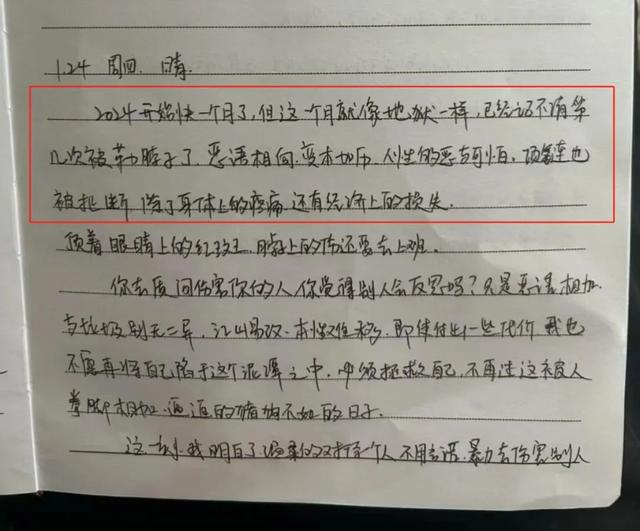 1.24 周四. 晴.
2024开始快一个月了,但这一个月就像地狱一样,已经记不清第
几次被勒脖子了.恶语相向.变本加厉.人性的恶与可怕.项链也
被扯断.除了身体上的疼痛.还有经济上的损失.
顶着眼睛上的红斑.脖上的伤还要去上班.
你去质问伤害你的人你觉得别人会反思吗?只是恶语相加.
与垃圾别无二异,江山易改.本性难移.即使付出一些代价 我也
不愿再将自己陷于这个泥潭之中.必须拯救自己,不再过这被人
拳脚相加.逼迫的猪狗不如的日子.
这一刻我明白了温柔的对待个人不用言语.暴力去伤害别人